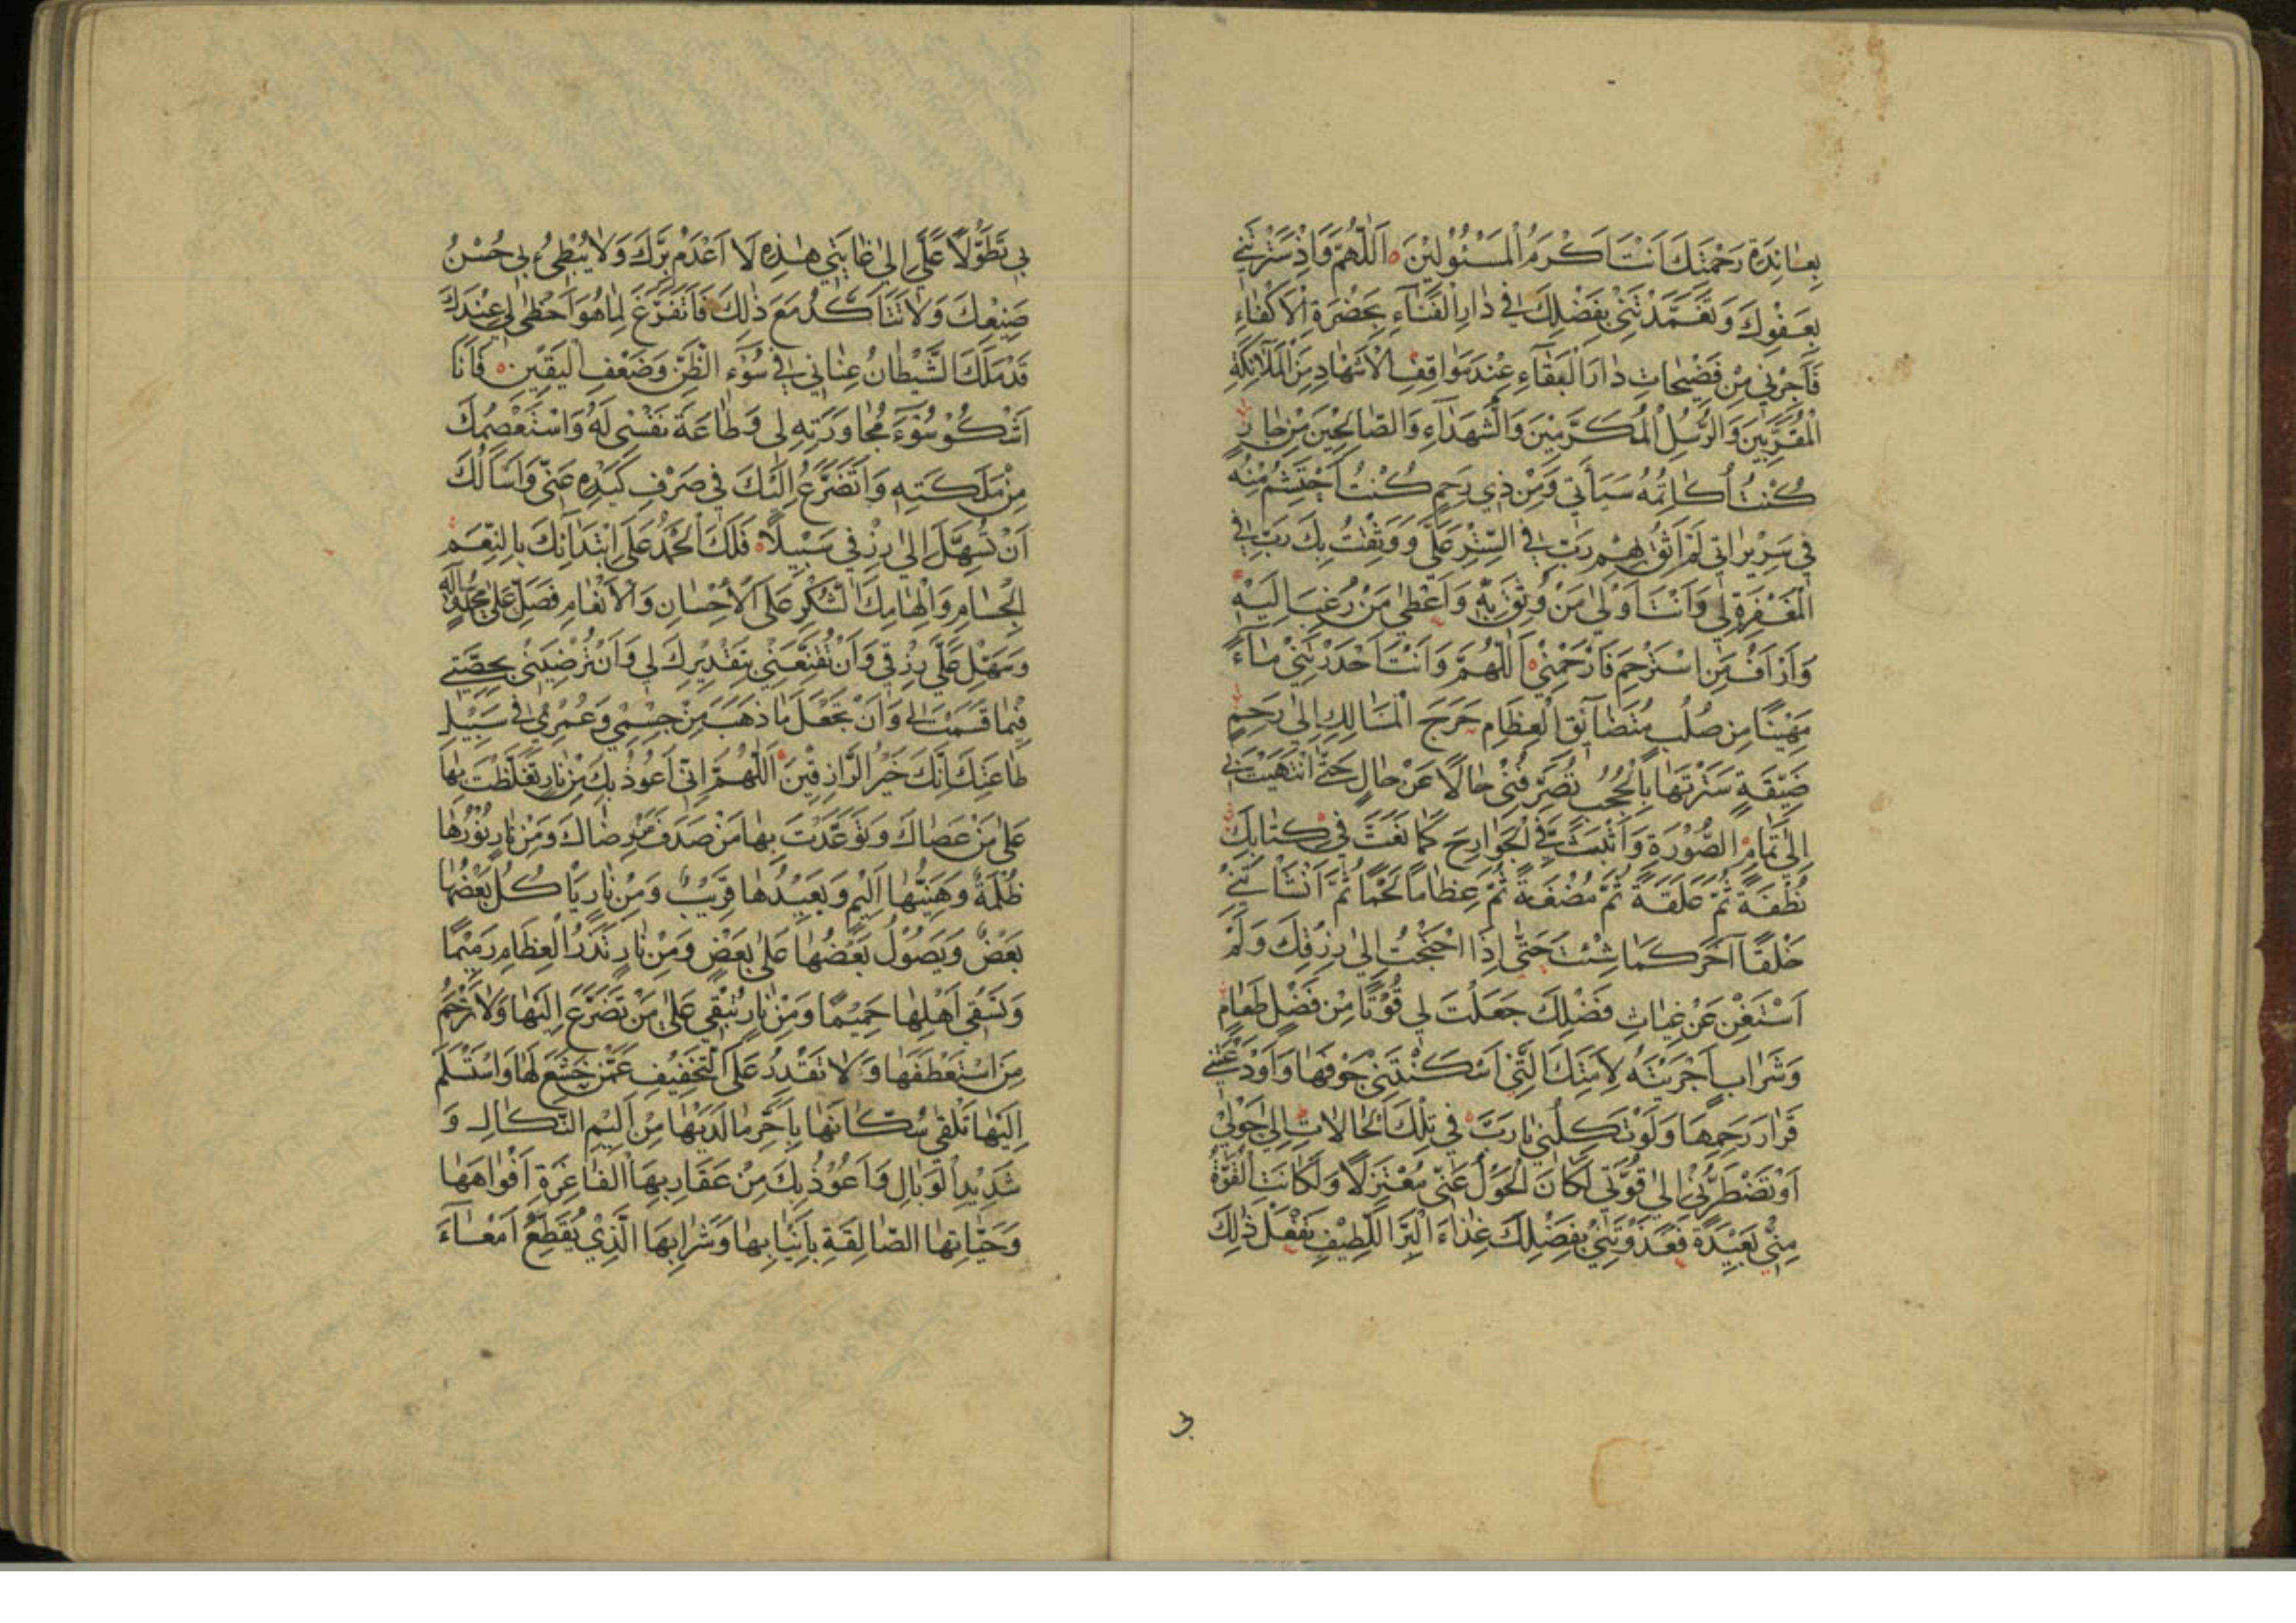 بِعٰائِدَةِ رَحْمَتِكَ اَنْتَ اَكْرَمُ الْمَسْئُوْلِيْنَ ه اَللّٰهُمَّ وَاِذْ سَتَرْتَنِيْ
بِعَفْوِكَ وَتَغَمَّدْتَنِيْ بِفَضْلِكَ فِيْ دٰارِ الْفَنٰآءِ بِحَضْرَةِ الْاَكْفٰاءِ
فَاَجِرْنِي مِنْ فَضِيْحٰاتِ دٰارِ الْبَقٰآءِ عِنْدَ مَوٰاقِفِ الْاَشْهٰادِ مِنَ الْمَلٰآئِكَةِ
الْمُقَرَّبِيْنَ وَالرُّسُلِ الْمُكَرَّمِيْنَ وَالشُّهَدٰاءِ وَالصّٰالِحِيْنَ مِنْ جٰارٍ
كُنْتُ اُكٰاتِمُهُ سَيِّاٰتِي وَمِنْ ذِي رَحِمٍ كُنْتُ اَحْتَشِمُ مِنْهُ
فِي سَرِيْرٰاتِي لَمْ اَثِقْ بِهِمْ رَبِّ فِي السِّتْرِ عَلَيَّ وَوَثِقْتُ بِكَ رَبِّ فِي
الْمَغْفِرَةِ لِي وَاَنْتَ اَوْلٰى مَنْ وُثِقَ بِهِ وَاَعْطٰى مَنْ رُغِبَ اِلَيْهِ
وَاَرْاَفُ مَنِ اسْتُرْحِمَ فَارْحَمْنِيْ ه اَللّٰهُمَّ وَاَنْتَ اَحْدَرْتَنِيْ مٰاءً
مَهِيْنًا مِن صُلْبٍ مُتَضٰآئِقِ الْعِظَامِ حَرَجِ الْمَسَالِكِ اِلٰى رَحِمٍ
ضَيِّقَةٍ سَتَرْتَهٰا بِالْحُجُبِ تُصَرِّفُنِيْ حٰالًا عَنْ حٰالٍ حَتَّى انْتَهَيْتَ بِيْ
اِلٰى تَمٰامِ الصُّوْرَةِ وَاَثْبَتَّ فِيَّ الْجَوٰارِحَ كَمٰا نَعَتَّ فِي كِتٰابِكَ
نُطْفَةً ثُمَّ عَلَقَةً ثُمَّ مُضْغَةً ثُمَّ عِظٰامًا لَحْمًا ثُمَّ اَنْشَأْتَنِيْ
خَلْقًا آخَرَ كَمٰا شِئْتَ حَتّٰى اِذَا احْتَجْتُ اِلٰى رِزْقِكَ وَلَمْ
اَسْتَغْنِ عَنْ غِيٰاثِ فَضْلِكَ جَعَلْتَ لِي قُوْتًا مِنْ فَضْلِ طَعٰامٍ
وَشَرٰابٍ اَجْرَيْتَهُ لِاَمَتِكَ الَّتِيْ اَسْكَنْتَنِيْ جَوْفَهٰا وَاَوْدَعْتَنِيْ
قَرٰارَ رَحِمِهَا وَلَوْ تَكِلُنِي يٰا رَبِّ فِي تِلْكَ الْحٰالٰاتِ اِلٰى حَوْلِيْ
اَوْ تَضْطَرُّنِيْ اِلٰى قُوَّتِي لَكٰانَ الْحَوْلُ عَنِّي مُعْتَزِلًا وَلَكٰانَتِ الْقُوَّةُ
مِنِّي بَعِيْدَةً فَغَذَوْتَنِيْ بِفَضْلِكَ غِذٰاءَ الْبَرِّ اللَّطِيْفِ تَفْعَلُ ذٰلِكَ
بِي تَطَوُّلًا عَلَيَّ اِلٰى غٰايَتِي هٰذِهِ لَا اَعْدَمُ بِرَّكَ وَلٰا يُبْطِئُ بِي حُسْنُ
صَنِيْعِكَ وَلٰا تَتَاَكَّدُ مَعَ ذٰلِكَ فَاَتَفَرَّغَ لِمٰا هُوَ اَحْظٰى لِي عِنْدَكَ
قَدْ مَلَكَ الشَّيْطٰانُ عِنٰانِي فِي سُوْءِ الظَّنِّ وَضَعْفِ الْيَقِيْنِ ه فَاَنَا
اَشْكُوْ سُوْءَ مُجٰاوَرَتِهِ لِى وَطٰاعَةَ نَفْسِي لَهُ وَاَسْتَعْصِمُكَ
مِنْ مَلَكَتِهِ وَاَتَضَرَّعُ اِلَيْكَ فِي صَرْفِ كَيْدِهِ عَنِّي وَاَسْاَلُكَ
اَنْ تُسَهِّلَ اِلٰى رِزْقِي سَبِيْلًا ه فَلَكَ الْحَمْدُ عَلَى ابْتِدٰآئِكَ بِالنِّعَمِ
الْجِسٰامِ وَاِلْهٰامِكَ الشُّكْرَ عَلَى الْاِحْسٰانِ وَالْاِنْعٰامِ فَصَلِّ عَلٰى مُحَمَّدٍ وَاٰلِهِ
وَسَهِّلْ عَلَيَّ رِزْقِي وَاَنْ تُقَنِّعَنِيْ بِتَقْدِيْرِكَ لِي وَاَنْ تُرْضِيَنِيْ بِحِصَّتِي
فِيْمٰا قَسَمْتَ لِي وَاَنْ تَجْعَلَ مٰا ذَهَبَ مِنْ جِسْمِي وَعُمْرِي فِي سَبِيْلِ
طٰاعَتِكَ اِنَّكَ خَيْرُ الرَّازِقِيْنَ ه اَللّٰهُمَّ اِنِّي اَعُوْذُ بِكَ مِنْ نٰارٍ تَغَلَّظْتَ بِهٰا
عَلٰى مَنْ عَصٰاكَ وَتَوَعَّدْتَ بِهٰا مَنْ صَدَفَ عَنْ رِضٰاكَ وَمِنْ نٰارٍ نُوْرُهٰا
ظُلْمَةٌ وَهَيِّنُهٰا اَلِيْمٌ وَبَعِيْدُهٰا قَرِيْبٌ وَمِنْ نٰارٍ يَاْكُلُ بَعْضُهٰا
بَعْضٌ وَيَصُوْلُ بَعْضُهٰا عَلٰى بَعْضٍ وَمِنْ نٰارٍ تَذَرُ الْعِظَامَ رَمِيْمًا
وَتَسْقِي اَهْلَهٰا حَمِيْمًا وَمِنْ نٰارٍ لٰا تُبْقِي عَلٰى مَنْ تَضَرَّعَ اِلَيْهٰا وَلٰا تَرْحَمُ
مَنِ اسْتَعْطَفَهٰا وَلٰا تَقْدِرُ عَلَى التَّخْفِيْفِ عَمَّنْ خَشَعَ لَهٰا وَاسْتَسْلَمَ
اِلَيْهٰا تَلْقٰى سُكّٰانَهٰا بِاَحَرِّ مٰا لَدَيْهٰا مِنْ اَلِيْمِ النَّكٰالِ وَ
شَدِيْدِ الْوَبٰالِ وَاَعُوْذُ بِكَ مِنْ عَقَارِبِهَا الْفٰاغِرَةِ اَفْوٰاهَهٰا
وَحَيّٰاتِهٰا الصّٰالِقَةِ بِاَنْيٰابِهٰا وَشَرٰابِهَا الَّذِيْ يُقَطِّعُ اَمْعٰآءَ